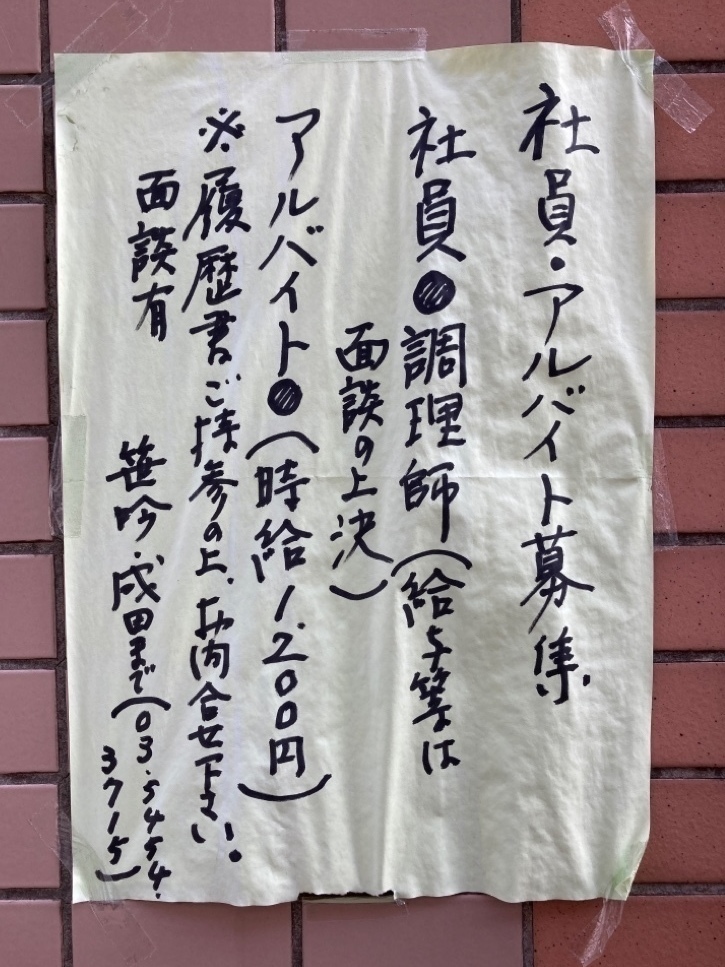 社員・アルバイト募集
社員●調理師（給与等は
面談の上決）
アルバイト●（時給1.200円）
※履歴書ご持参の上、お問合せ下さい。
面談有
笹吟・成田まで（03.5454.
3715）